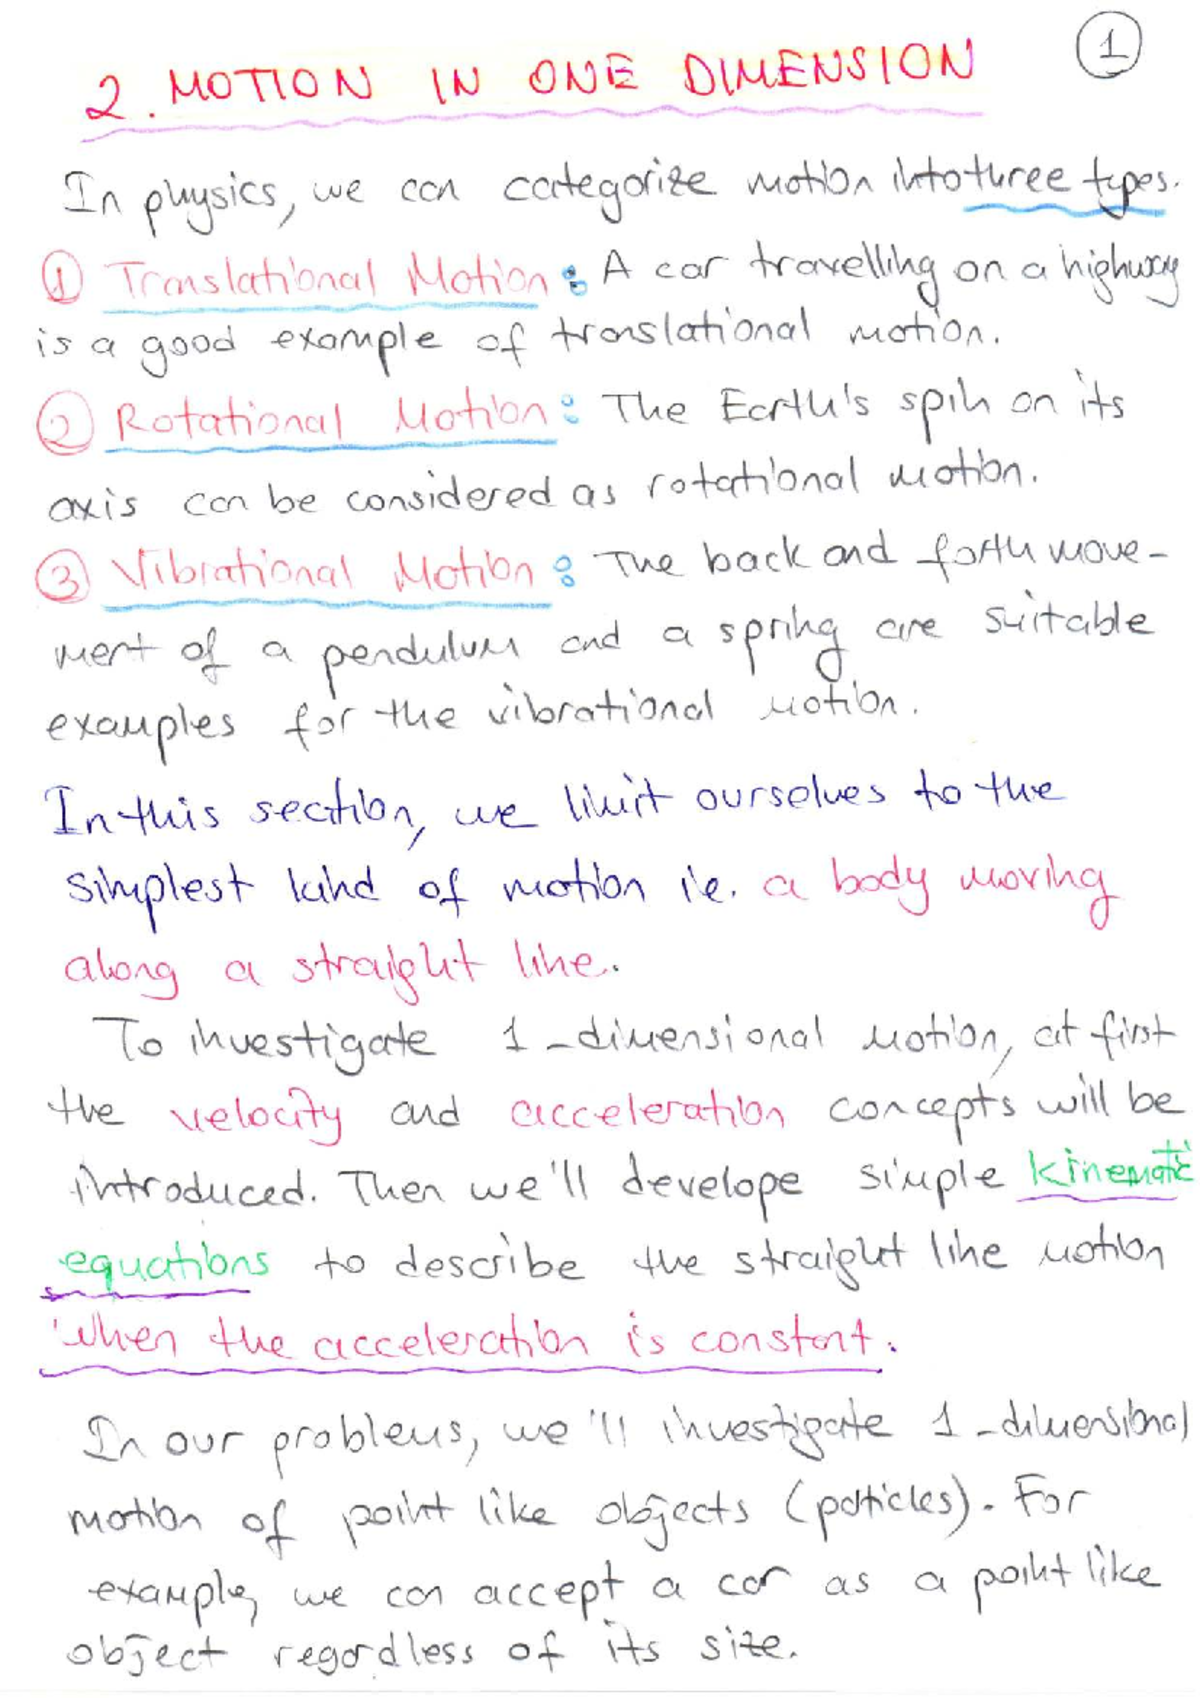 1
2. MOTION IN ONE DIMENSION
In physics, we can categorize motion into three types.
1 Translational Motion: A car travelling on a highway
is a good example of translational motion.
2 Rotational Motion: The Earth's spin on its
axis can be considered as rotational motion.
3 Vibrational Motion: The back and forth move-
ment of a pendulum and a spring are suitable
examples for the vibrational motion.
In this section, we limit ourselves to the
simplest kind of motion i.e. a body moving
along a straight line.
To investigate 1-dimensional motion, at first
the velocity and acceleration concepts will be
introduced. Then we'll develope simple kinematic
equations to describe the straight line motion
when the acceleration is constant.
In our problems, we'll investigate 1-dimensional
motion of point like objects (particles). For
example, we can accept a car as a point like
object regardless of its size.